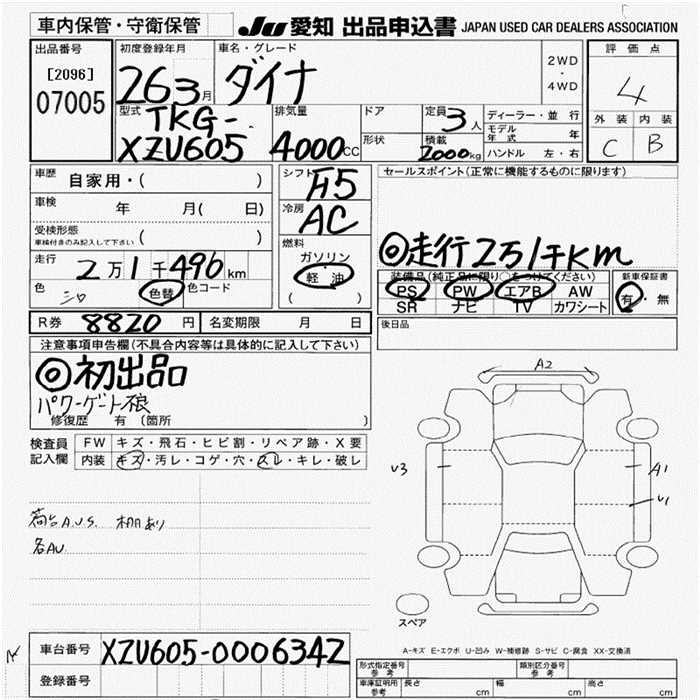 車内保管・守衛保管
JU 愛知 出品申込書 JAPAN USED CAR DEALERS ASSOCIATION
出品番号
[2096]
07005
初度登録年月
26 3月
車名・グレード
ダイナ
2WD
・
4WD
評価点
4
外装 内装
C B
型式
TKG-
XZU605
排気量
4000cc
ドア
形状
定員 3人
積載
2000kg
ディーラー・並行
モデル年式 年
ハンドル 左・右
車歴
自家用・( )
車検
年 月( 日)
受検形態
車検付きのみ記入して下さい ( )
走行
2万1千496km
色
シロ
色替
色コード
シフト
冷房
AC
燃料
ガソリン
軽油
( )
セールスポイント(正常に機能するものに限ります)
◎走行2万1千KM
装備品(純正品に限り○をつけてください)
PS PW エアB AW
SR ナビ TV カワシート
新車保証書
有・無
後日品
R券 8820円
名変期限 月 日
注意事項申告欄(不具合内容等は具体的に記入して下さい)
◎初出品
パワーゲート
修復歴 有 (箇所 )
検査員
記入欄
FW キズ・飛石・ヒビ割・リペア跡・X要
内装 キズ・汚レ・コゲ・穴・スレ・キレ・破レ
荷台A.U.S. 棚あり
各AU
A2
U3
A1
U1
スペア
A-キズ E-エクボ U-凹み W-補修跡 S-サビ C-腐食 XX-交換済
車台番号 XZU605-0006342
登録番号
型式指定番号
参考
類別区分番号
参考
車庫証明用
参考
長さ cm
幅 cm
高さ cm